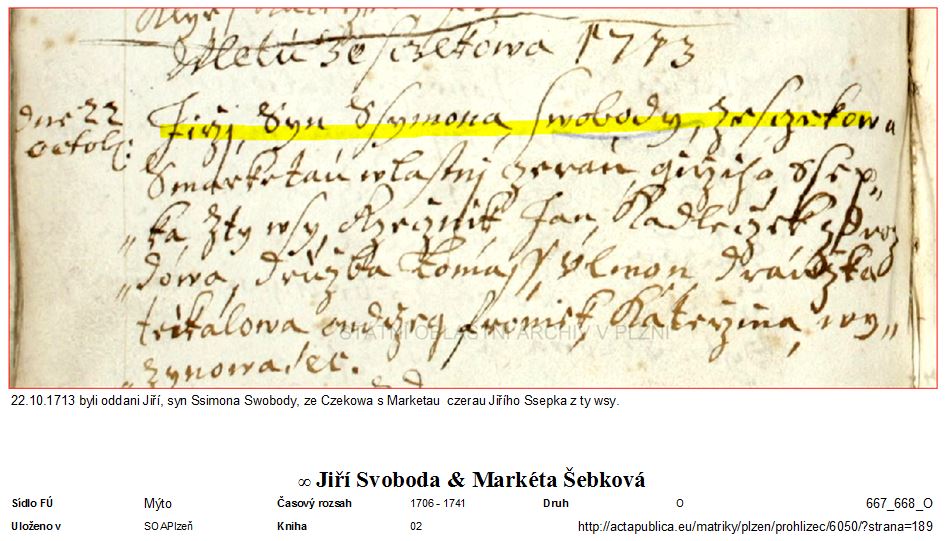 Mletú ze sczekowa 1713
dne 22
octob:
Jirzj, Syn Ssymona swobody, ze sczekowa
Smarketaú wlastnj czeraú girziho Ssep„
„ka zty wsy, Rzecznik Jan Kadleczek z Proz
„dowa, drúzba Tomass Ulmon draúzka
ondrzeg froniek Katerzina wy„
„zynowa etc.
STÁTNÍ OBLASTNÍ ARCHIV V PLZNI
22.10.1713 byli oddani Jiří, syn Ssimona Swobody, ze Czekowa s Marketau czerau Jiřího Ssepka z ty wsy.
∞ Jiří Svoboda & Markéta Šebková
Sídlo FÚ Mýto Časový rozsah 1706 - 1741 Druh O 667_668_O
Uloženo v SOAPlzeň Kniha 02 http://actapublica.eu/matriky/plzen/prohlizec/6050/?strana=189